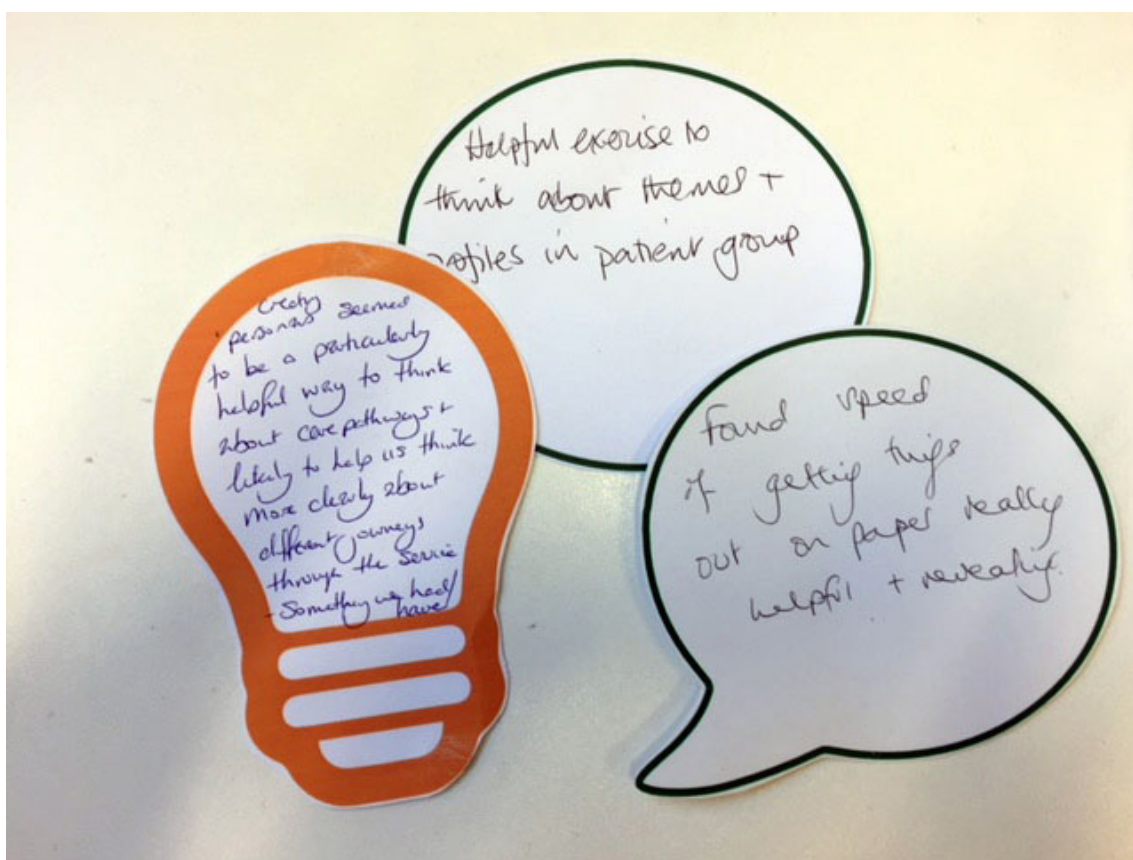 Helpful exercise to
think about themes +
profiles in patient group
Creating
personas seemed
to be a particularly
helpful way to think
about care pathways +
likely to help us think
more clearly about
different journeys
through the service
- Something we had/
have
Found speed
of getting things
out on paper really
helpful + revealing.